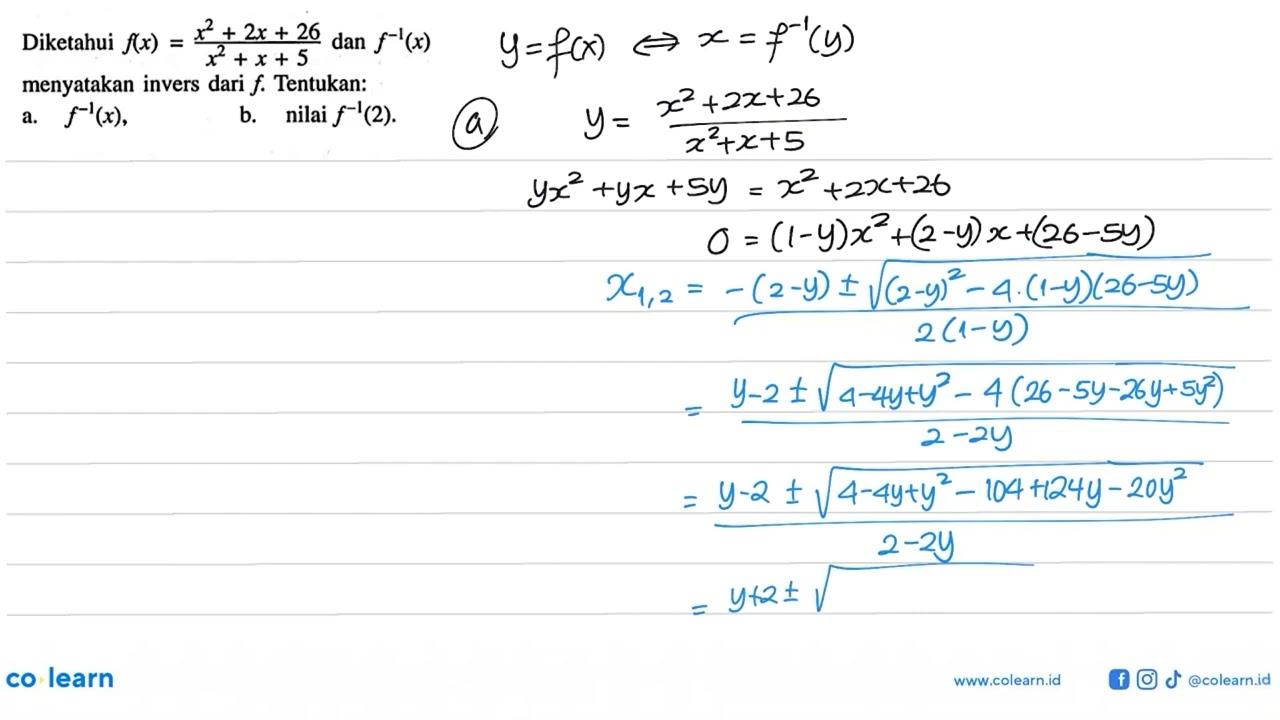 Diketahui f(x) = \frac{x² + 2x + 26}{x² + x + 5} dan f⁻¹(x)
menyatakan invers dari f. Tentukan:
a. f⁻¹(x), b. nilai f⁻¹(2).
y = f(x) ⇔ x = f⁻¹(y)
(a) y = \frac{x²+2x+26}{x²+x+5}
yx² + yx + 5y = x² + 2x + 26
0 = (1-y)x² + (2-y)x + (26-5y)
x₁,₂ = \frac{-(2-y) ± √((2-y)² - 4.(1-y)(26-5y))}{2(1-y)}
= \frac{y-2 ± √(4-4y+y² - 4(26-5y-26y+5y²))}{2-2y}
= \frac{y-2 ± √(4-4y+y² - 104+124y-20y²)}{2-2y}
= y+2 ± √
co learn
www.colearn.id @colearn.id